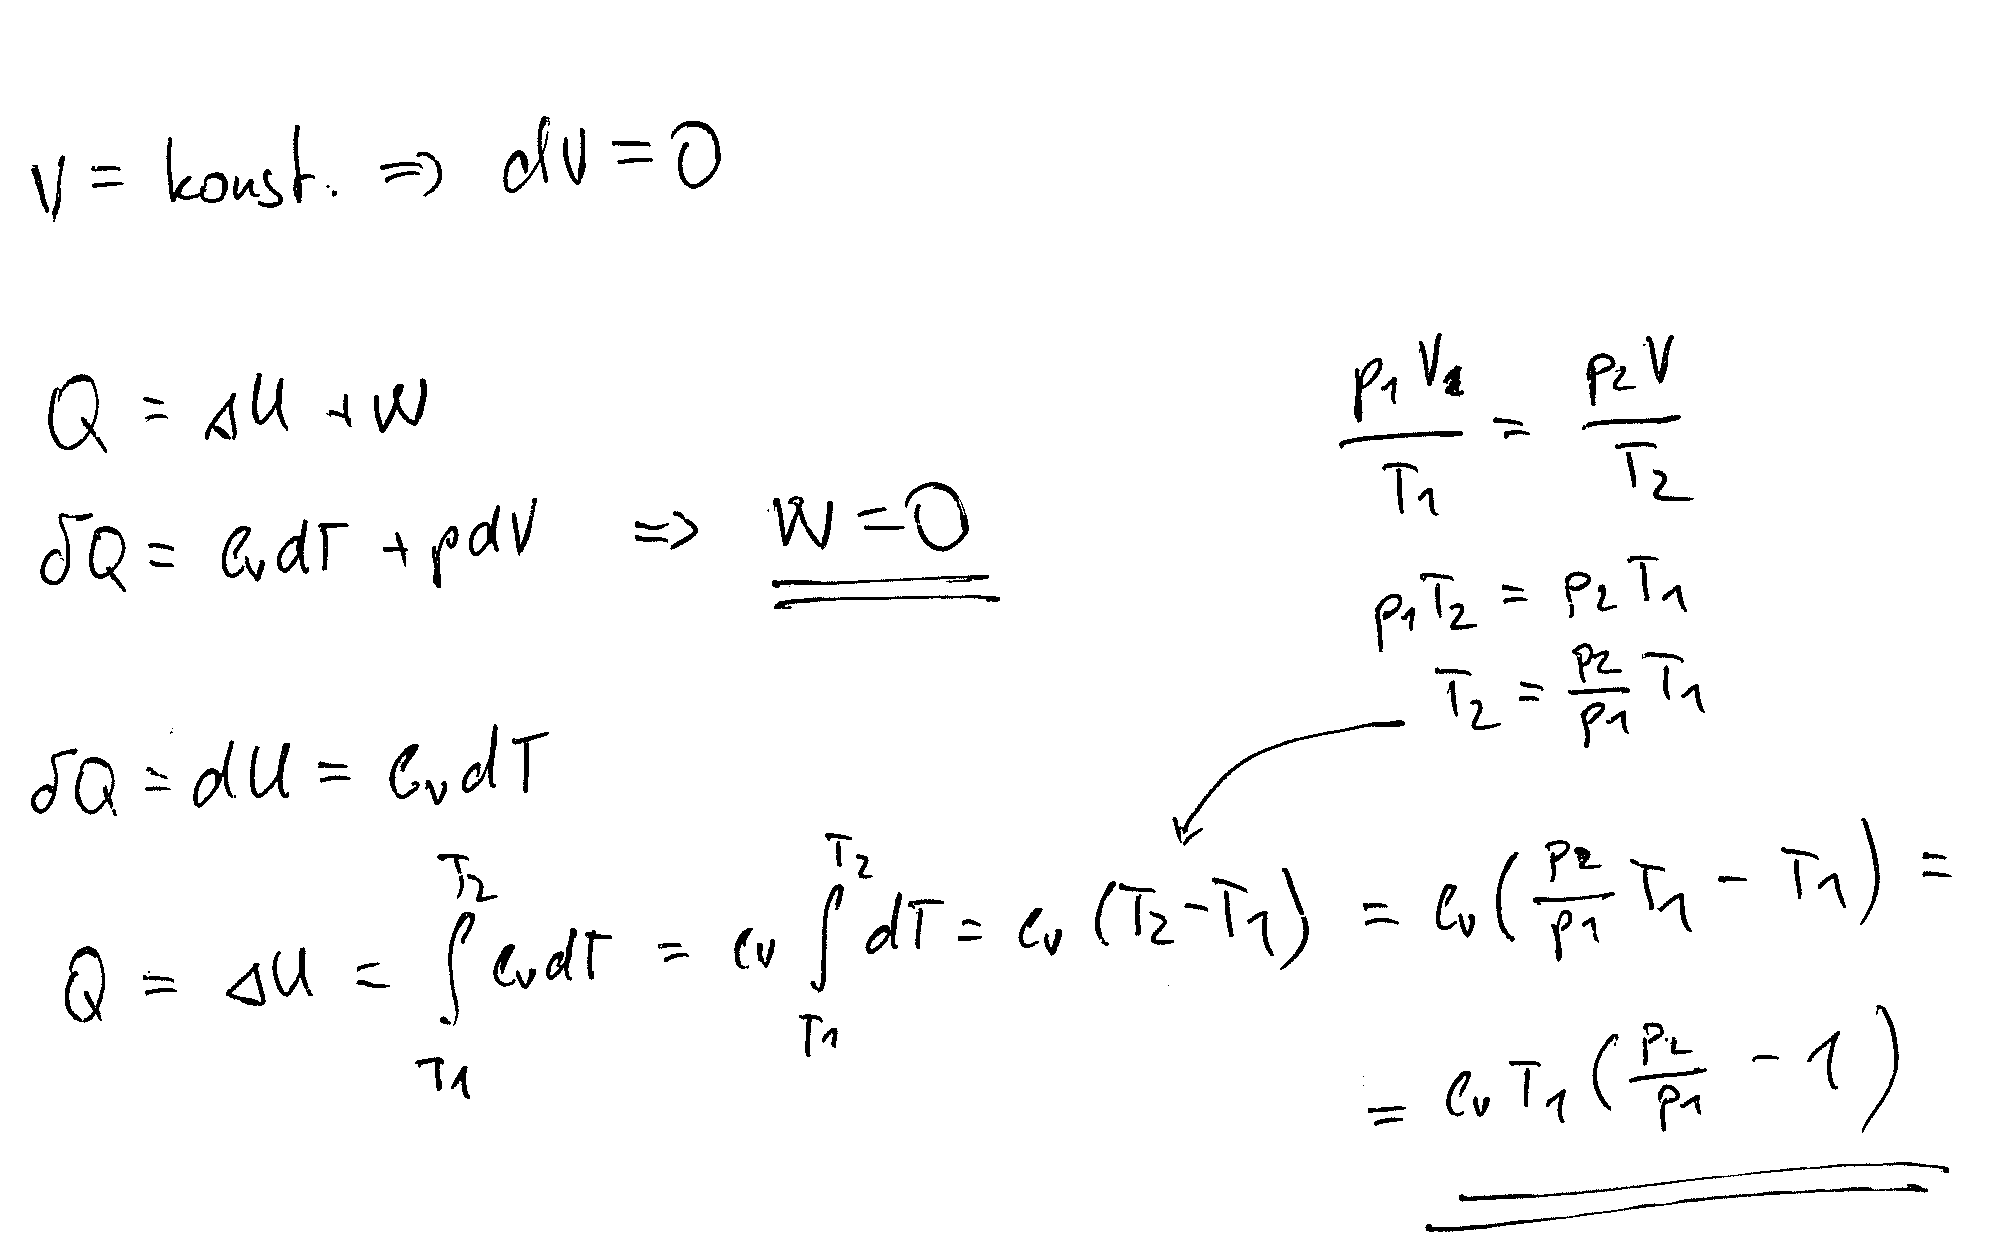 V = konst. ⇒ dV = 0
Q = ΔU + W
δQ = C_v dT + pdV ⇒ W = 0
p₁V₁/T₁ = p₂V/T₂
p₁T₂ = p₂T₁
T₂ = p₂/p₁ T₁
δQ = dU = C_v dT
Q = ΔU = ∫_{T₁}^{T₂} C_v dT = C_v ∫_{T₁}^{T₂} dT = C_v (T₂ - T₁) = C_v (p₂/p₁ T₁ - T₁) =
= C_v T₁ (p₂/p₁ - 1)